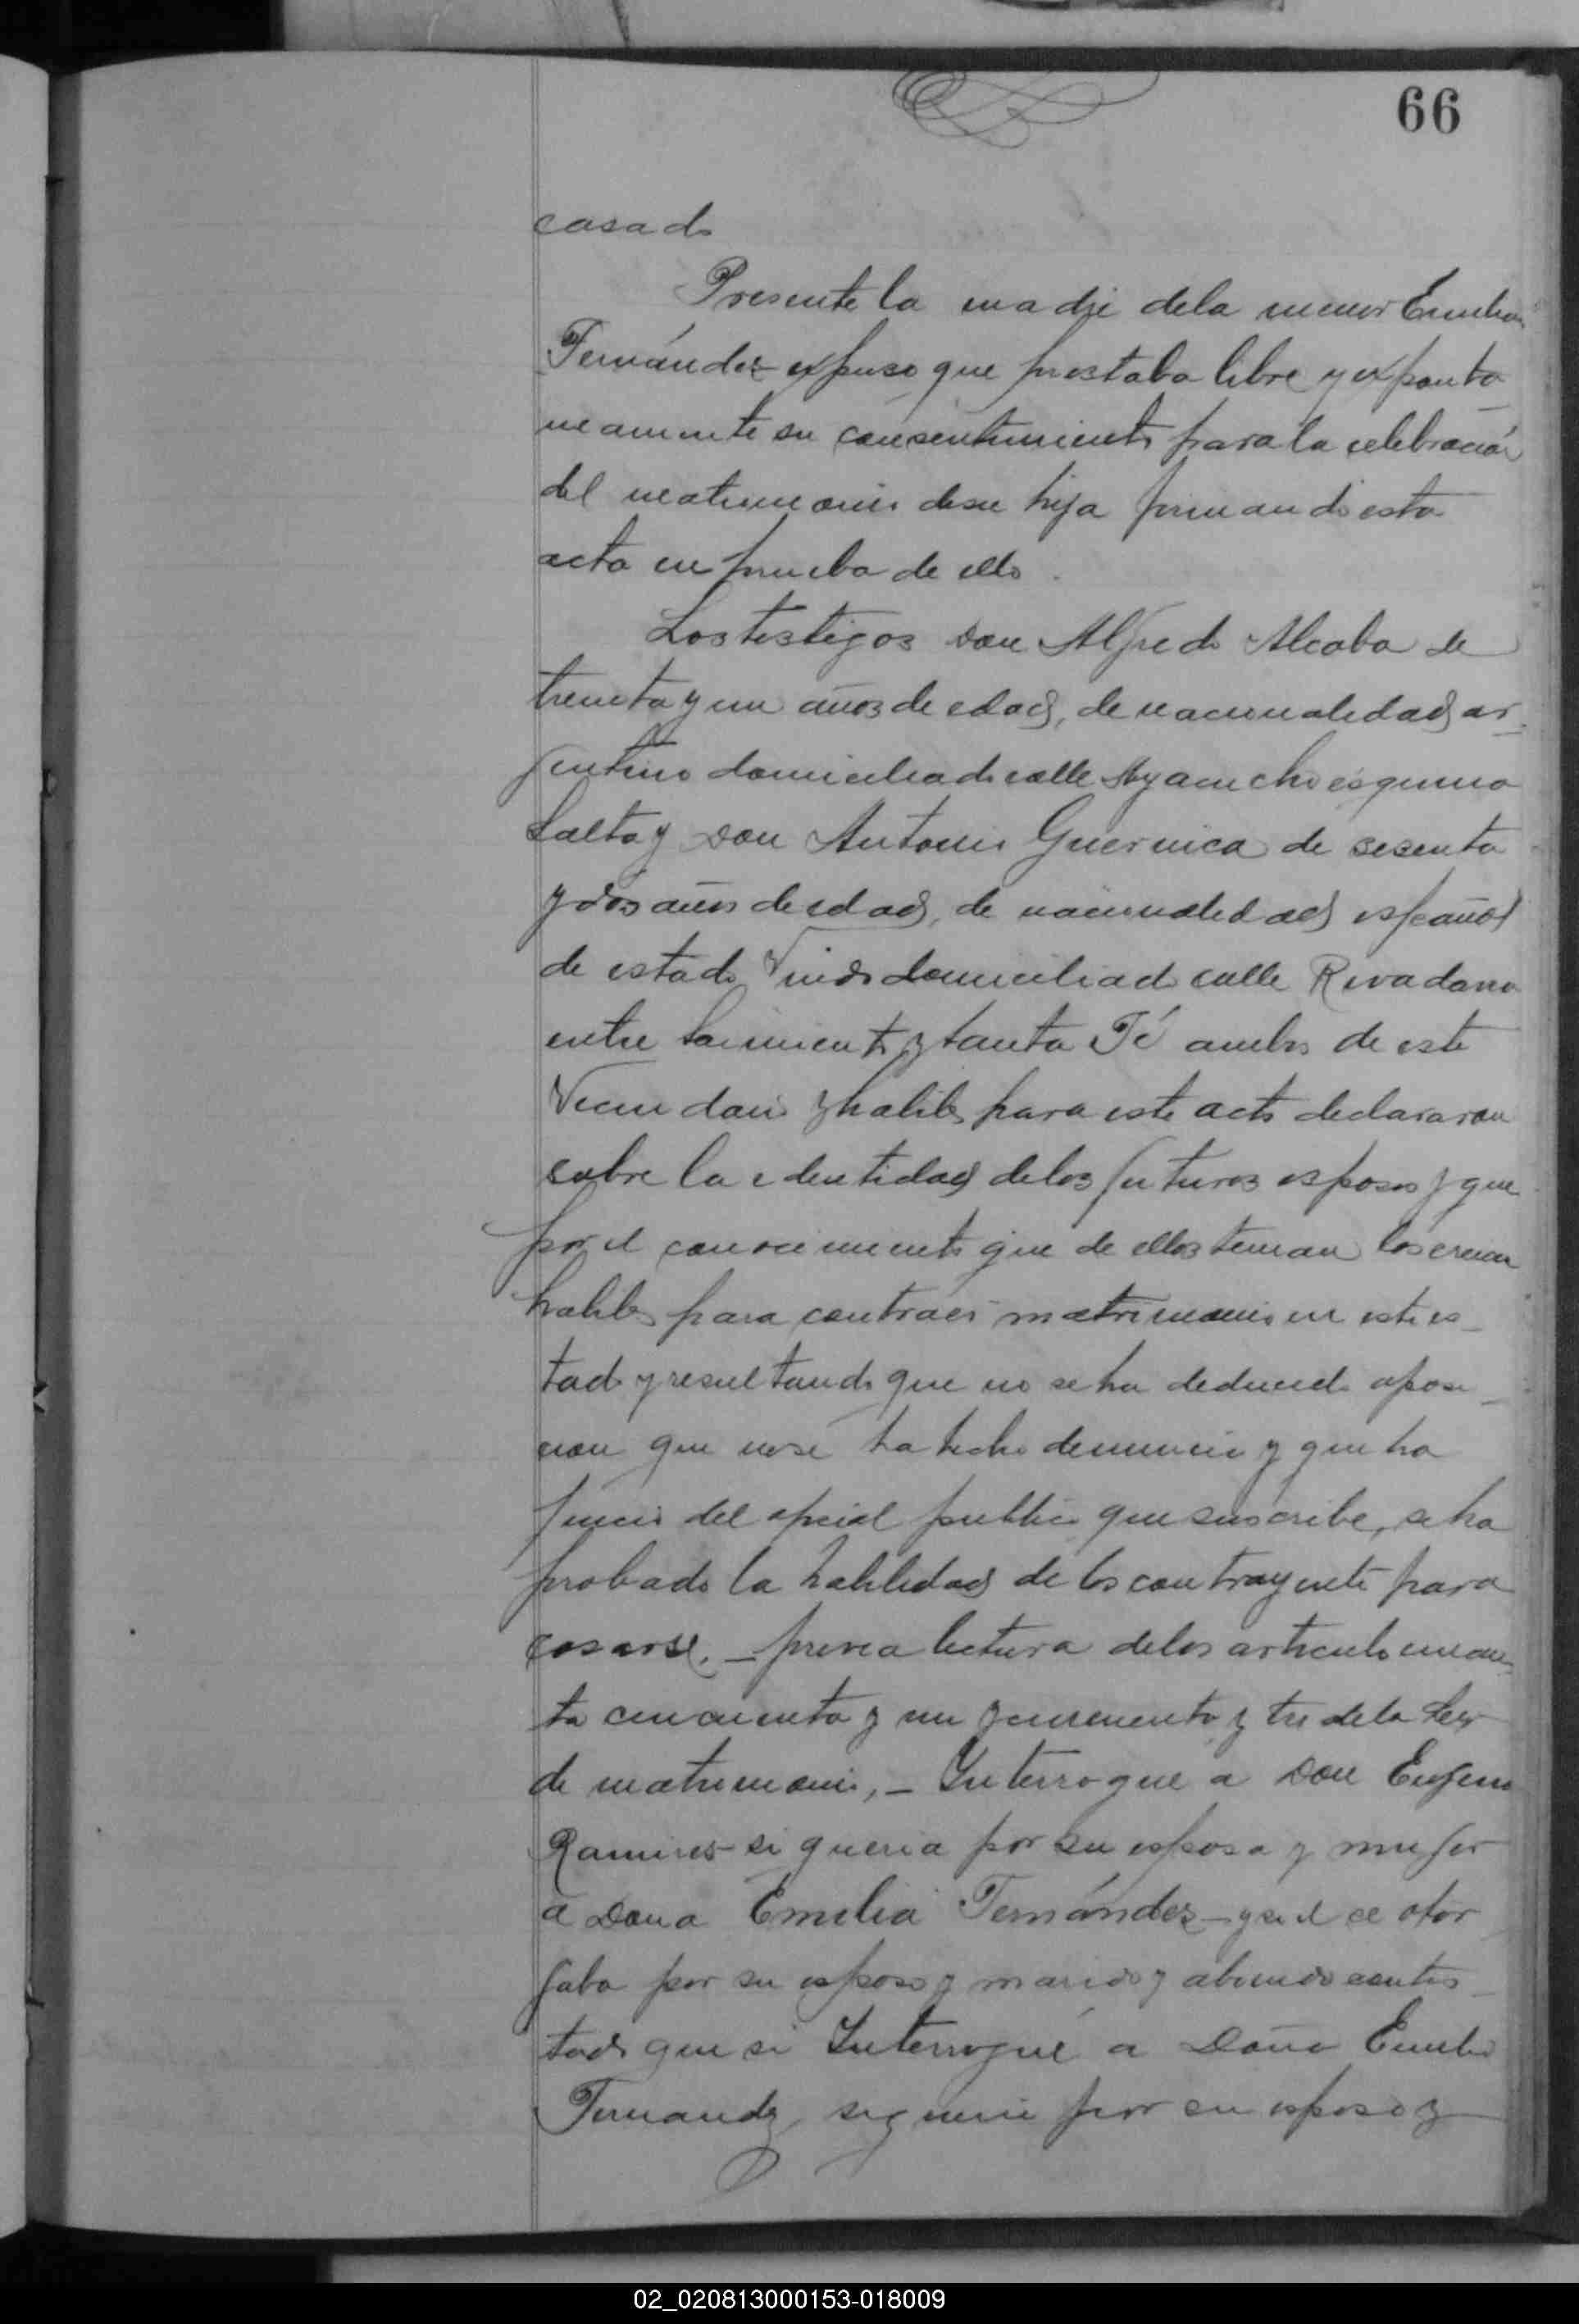 66
casado
Presente la madre dela menor Emilia
Fernández expuso que prestaba libre y exponta
neamente su consentimiento para la celebración
del matrimonio desu hija firmando esta
acta en prueba de ello.
Los testigos Don Alfredo Alcoba de
treinta y un años de edad, de nacionalidad ar_
gentino domiciliado calle Ayacucho esquina
Salta y Don Antonio Guernica de sesenta
y dos años de edad, de nacionalidad español
de estado Viudo domiciliado calle Rivadavia
entre Sarmiento y Santa Fé ambos de este
Vecindario y habiles para este acto declararon
sobre la identidad delos futuros esposos y que
por el conocimiento que de ellos tenian los creian
habiles para contraer matrimonio en este es_
tado y resultando que no se ha deducido oposi_
cion que no se ha hecho denuncia y que ha
juicio del oficial publico que suscribe, se ha
probado la habilidad de los contrayente para
casarse. _ previa lectura delos articulo cincuen_
ta cincuenta y un y cincuenta y tre dela Ley
de matrimonio, _ Interrogue a Don Eugenio
Ramires si queria por su esposa y mujer
a Dona Emilia Fernández _ y si el se otor
gaba por su esposo y marido y abiendo contes_
tado que si Interrogué a Doña Emilia
Fernandez si queria por su esposo y
02_020813000153-018009